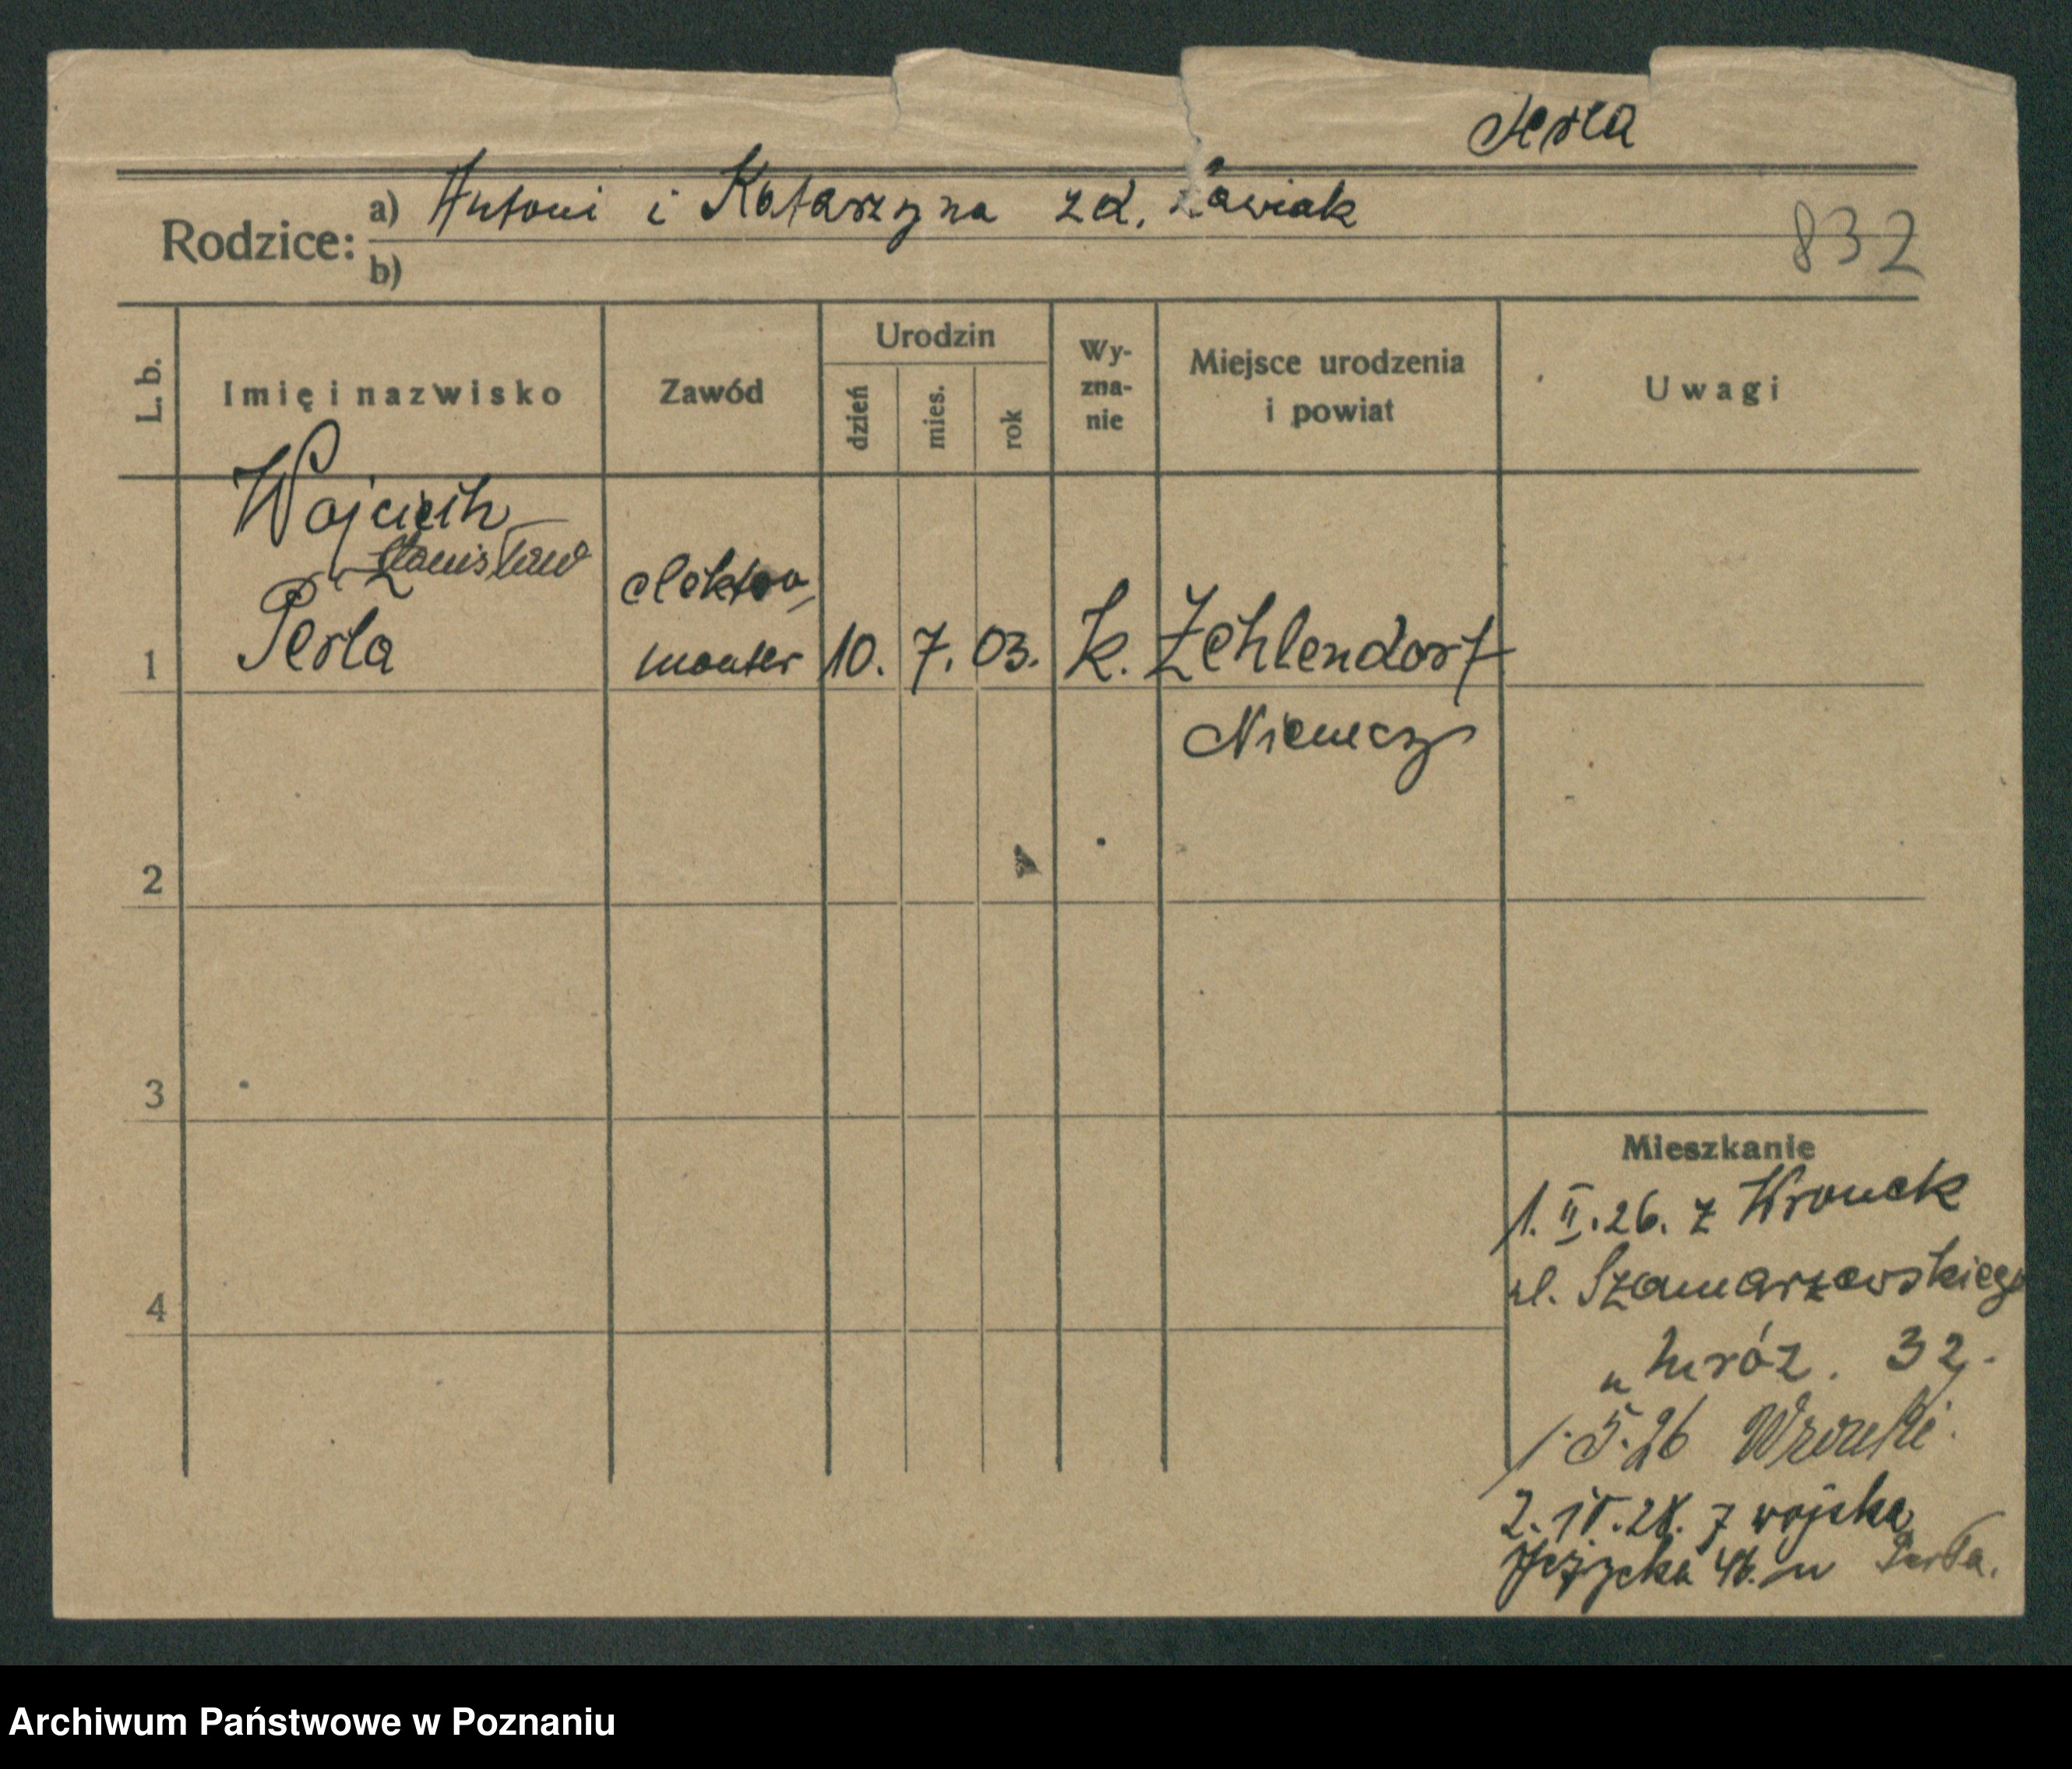 Perla
Rodzice: a) Antoni i Katarzyna zd. Ławiak
b)
832
L. b.
Imię i nazwisko
Zawód
Urodzin
dzień
mies.
rok
Wyzna-
nie
Miejsce urodzenia
i powiat
Uwagi
Wojciech
Stanisław
Perla
elektro,
monter
1
10. 7. 03.
k.
Zehlendorf
Niemcy
2
3
4
Mieszkanie
1. II. 26. z Wronek
ul. Szamarzewskiego
u Mróz. 32.
1. 5. 26 Wronki.
2. IV. 28. z wojska
Jeżycka 46. u Perla.